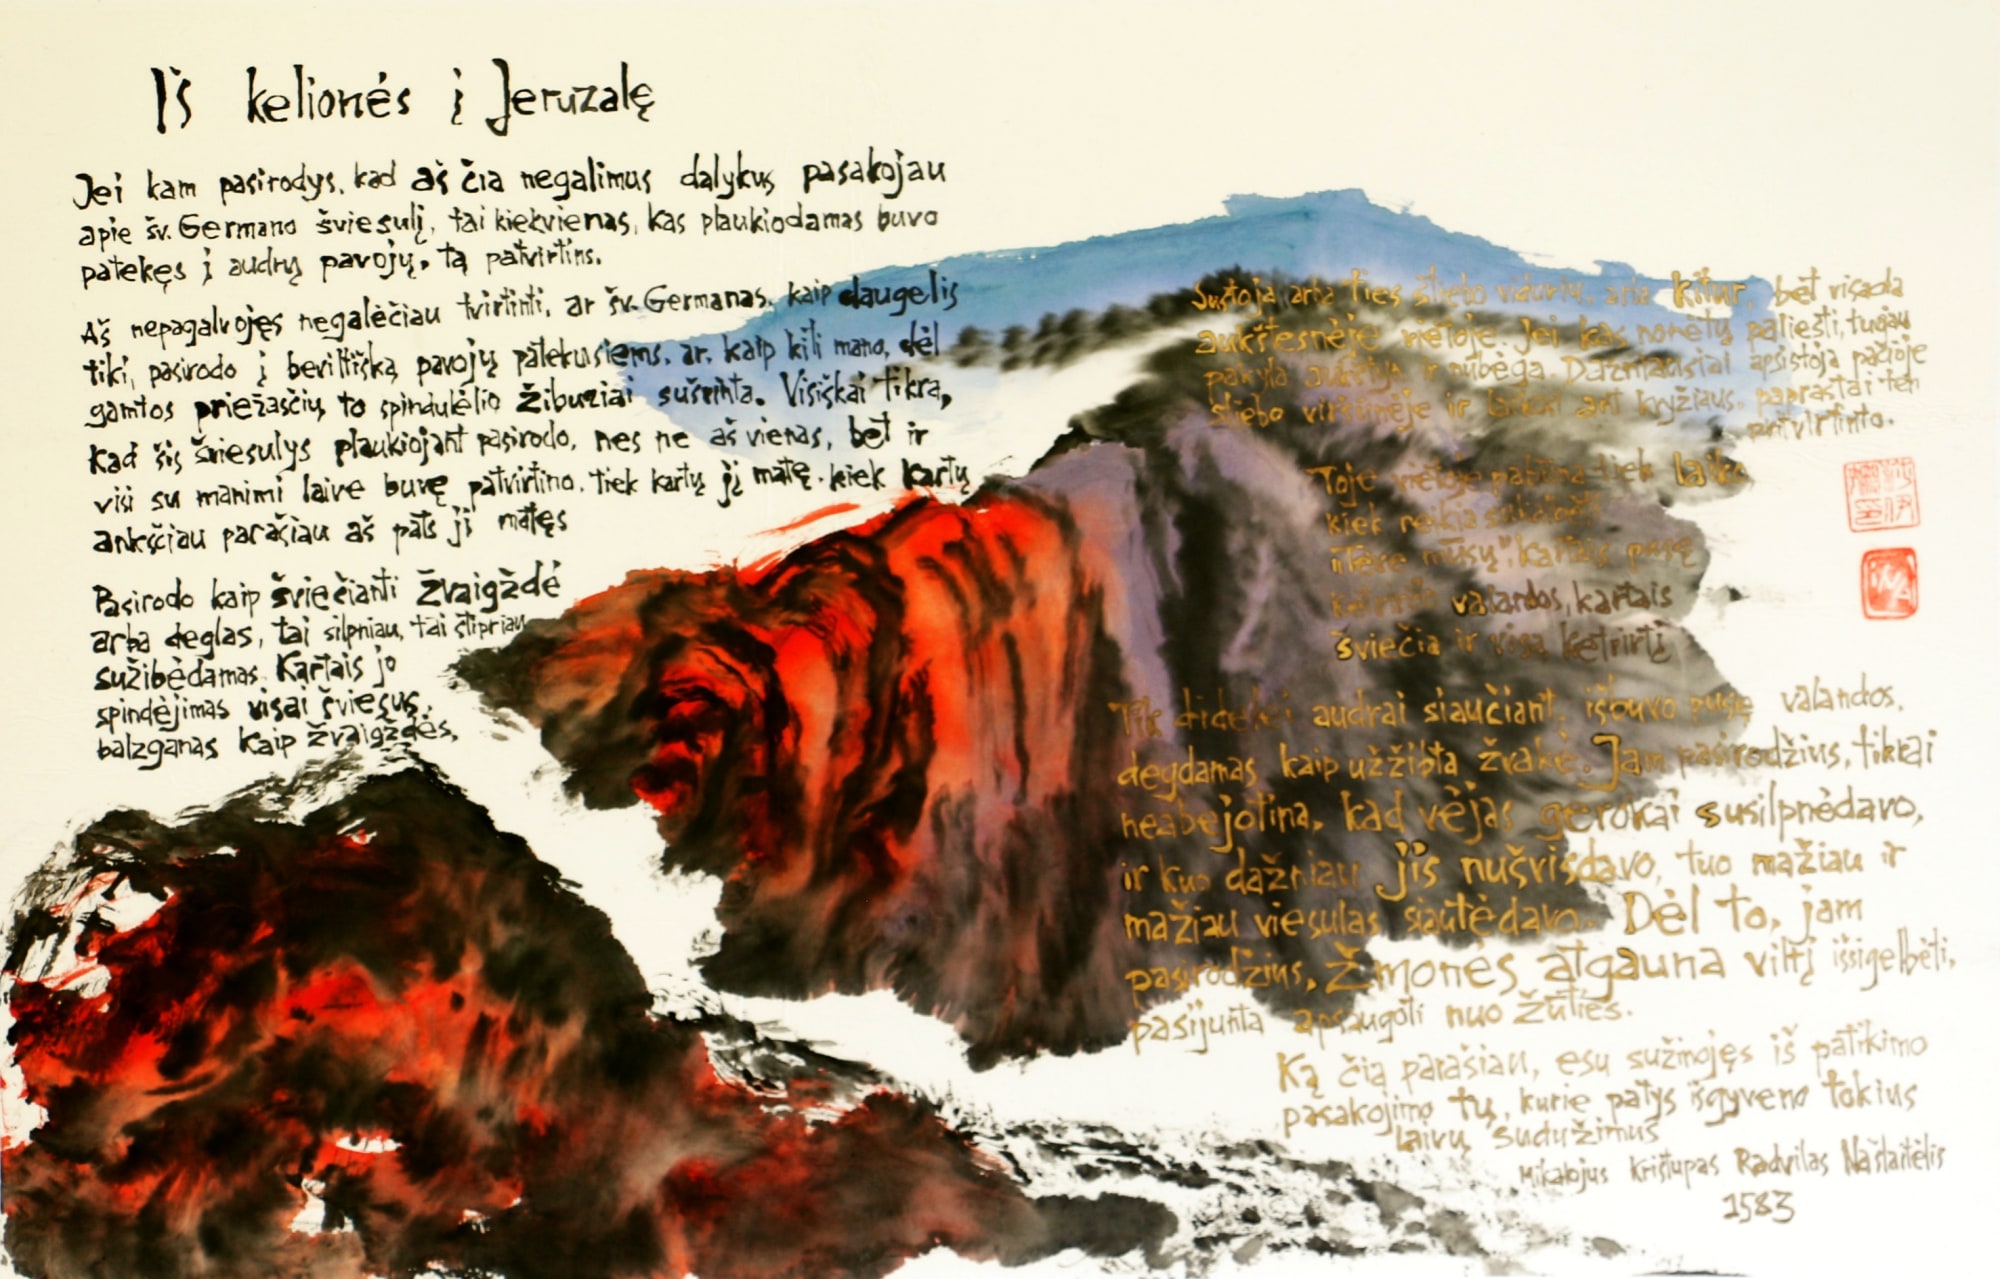 Iš kelionės į Jeruzalę
Jei kam pasirodys, kad aš čia negalimus dalykus pasakojau
apie šv. Germano šviesulį, tai kiekvienas, kas plaukiodamas buvo
patekęs į audrų pavojų, tą patvirtins.
Aš nepagalvojęs negalėčiau tvirtinti, ar šv. Germanas, kaip daugelis
tiki, pasirodo į beviltišką pavojų patekusiems, ar, kaip kiti mano, dėl
gamtos priežasčių to spindulėlio žiburiai sušvinta. Visiškai tikra,
kad šis šviesulys plaukiojant pasirodo, nes ne aš vienas, bet ir
visi su manimi laive buvę patvirtino, tiek kartų jį matę, kiek kartų
anksčiau parašiau aš pats jį matęs
Pasirodo kaip šviečianti žvaigždė
arba deglas, tai silpniau, tai stipriau
sužibėdamas. Kartais jo
spindėjimas visai šviesus,
balzganas kaip žvaigždės,
Sustoja arba ties stiebo viduriu, arba kitur, bet visada
aukštesnėje vietoje. Jei kas norėtų paliesti, tuojau
pakyla aukštyn ir nubėga. Dažniausiai apsistoja pačioje
stiebo viršūnėje ir laikosi ant kryžiaus, paprastai ten
pritvirtinto.
Toje vietoje pabūna tiek laiko
kiek reikia sukalbėti
"Tėve mūsų", kartais pusę
valandos, kartais
šviečia ir visą ketvirtį
Tik didelei audrai siaučiant, išbuvo pusę valandos,
degdamas kaip užžibta žvakė. Jam pasirodžius, tikrai
neabejotina, kad vėjas gerokai susilpnėdavo,
ir kuo dažniau jis nušvisdavo, tuo mažiau ir
mažiau viesulas siautėdavo. Dėl to, jam
pasirodžius, žmonės atgauna viltį išsigelbėti,
pasijunta apsaugoti nuo žūties.
Ką čia parašiau, esu sužinojęs iš patikimo
pasakojimo tų, kurie patys išgyveno tokius
laivų sudužimus
Mikalojus Kristupas Radvilas Našlaitėlis
1583